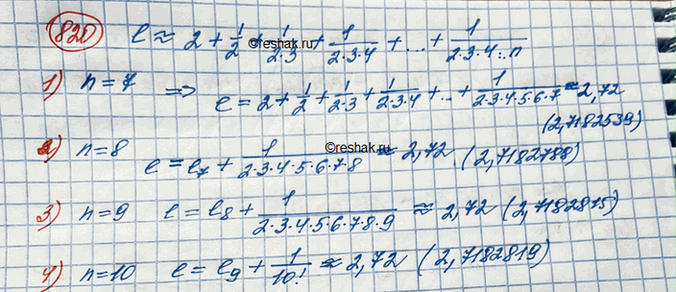 820 e ≈ 2 + 1/2 + 1/2·3 + 1/2·3·4 + ... + 1/2·3·4...n
©reshak.ru
1) n = 7 ⇒ e = 2 + 1/2 + 1/2·3 + 1/2·3·4 + ... + 1/2·3·4·5·6·7 ≈ 2,72
(2,7182539)
2) n = 8 e = e₇ + 1/2·3·4·5·6·7·8 ≈ 2,72 (2,7182788)
©reshak.ru
3) n = 9 e = e₈ + 1/2·3·4·5·6·7·8·9 ≈ 2,72 (2,7182815)
4) n = 10 e = e₉ + 1/10! ≈ 2,72 (2,7182819)